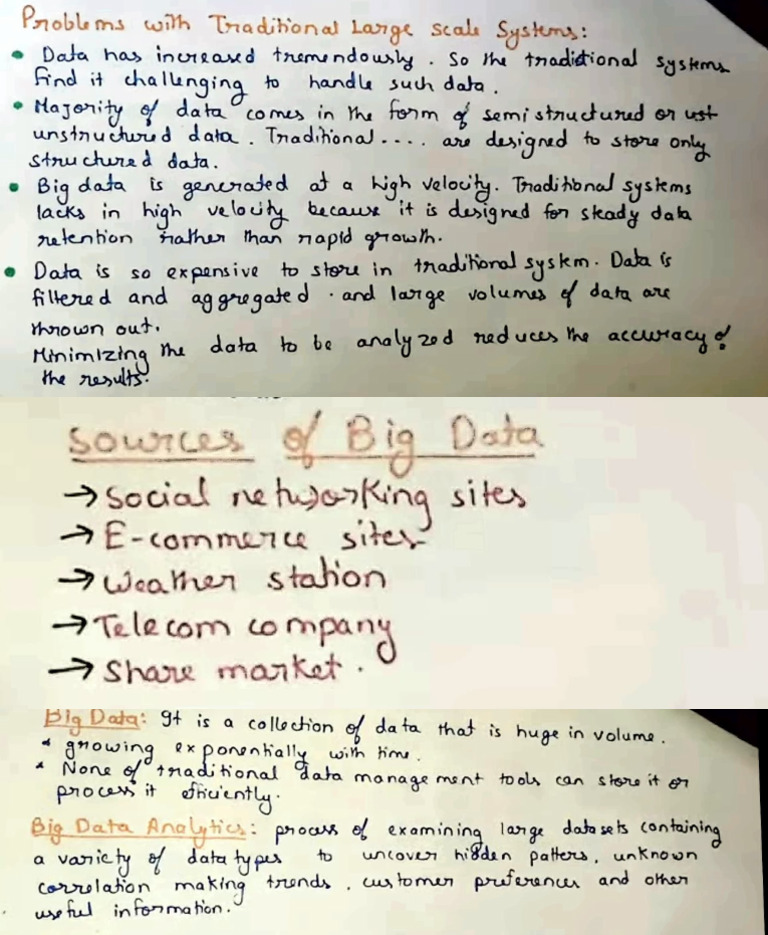 Problems with Traditional Large Scale Systems:
• Data has increased tremendously. So the tradictional systems
find it challenging to handle such data.
• Majority of data comes in the form of semistructured or ust
unstructured data. Traditional.... are designed to store only
structured data.
• Big data is generated at a high velocity. Traditional systems
lacks in high velocity because it is designed for steady data
retention rather than rapid growth.
• Data is so expensive to store in traditional system. Data is
filtered and aggregated. and large volumes of data are
thrown out.
Minimizing the data to be analyzed reduces the accuracy of
the results.
Sources of Big Data
→ Social networking sites
→ E-commerce sites
→ Weather station
→ Telecom company
→ Share market.
Big Data: It is a collection of data that is huge in volume.
* growing exponentially with time.
* None of traditional data management tools can store it or
process it efficiently.
Big Data Analytics: process of examining large datasets containing
a variety of data types to uncover hidden patters, unknown
correlation making trends, customer preferences and other
useful information.